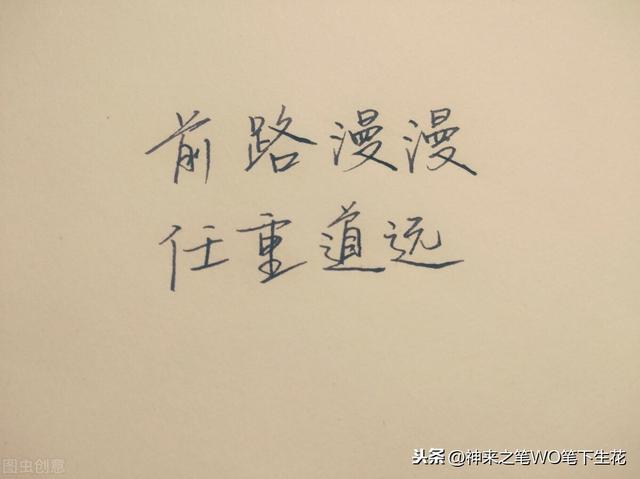 前路漫漫
任重道远
图虫创意
头条 @神来之笔WO笔下生花